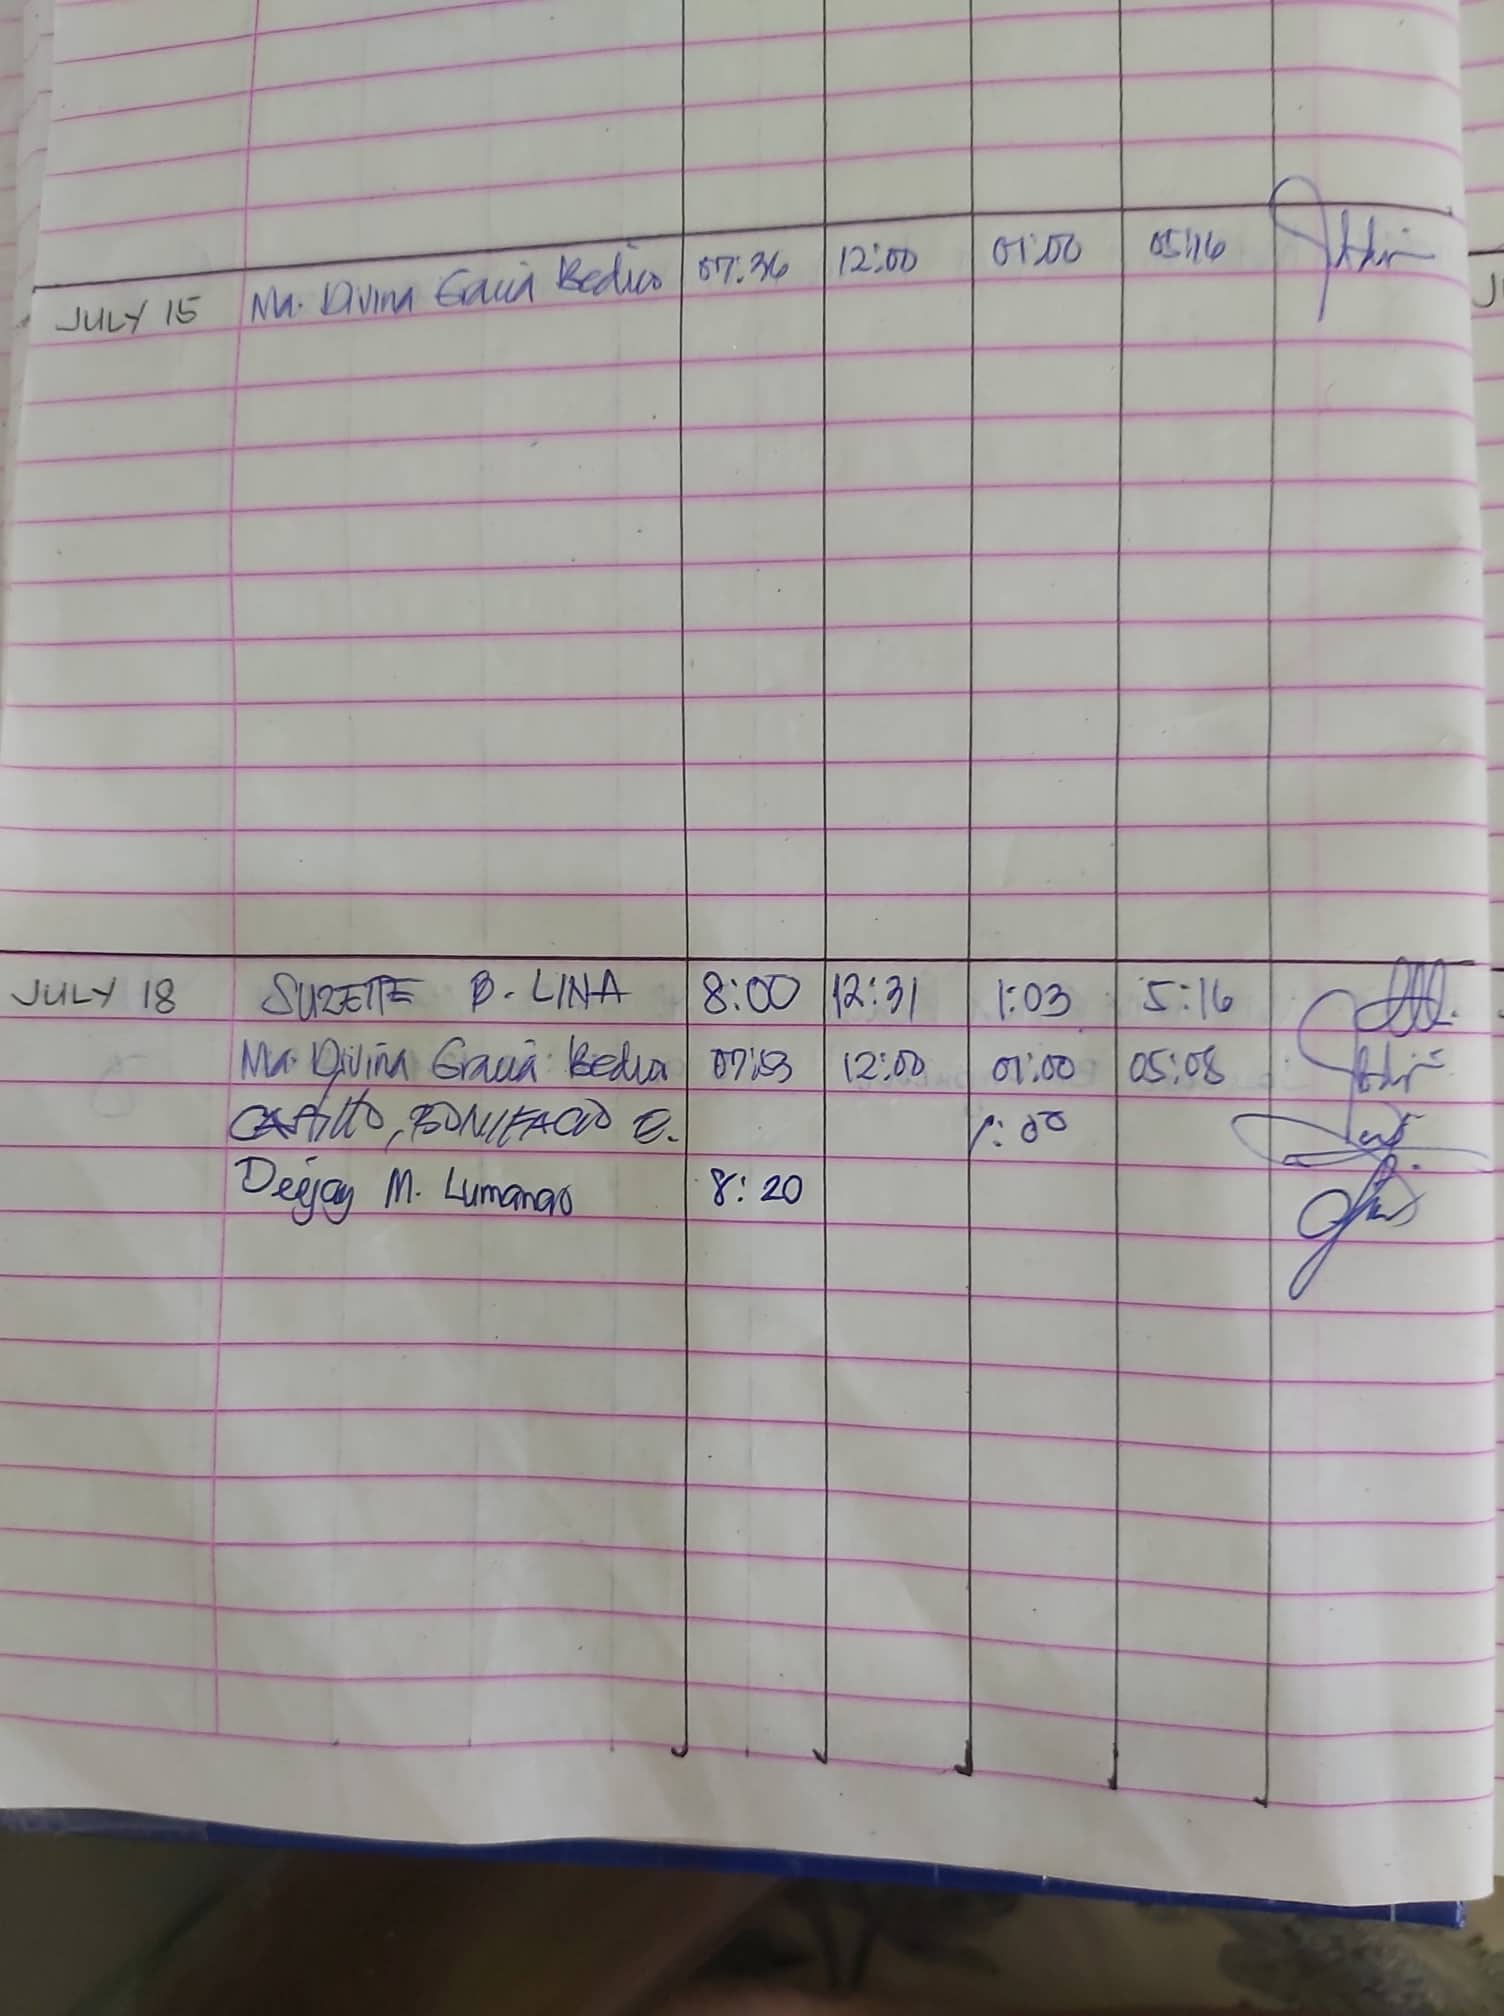 JULY 15 Ma. Divina Gracia Bedico 07:36 12:00 01:00 05:16
JULY 18 SUZETTE B. LINA 8:00 12:31 1:03 5:16
Ma. Divina Gracia Bedico 07:53 12:00 01:00 05:08
CASTILLO, BONIFACIO C. 1:00
Deejay M. Lumanao 8:20